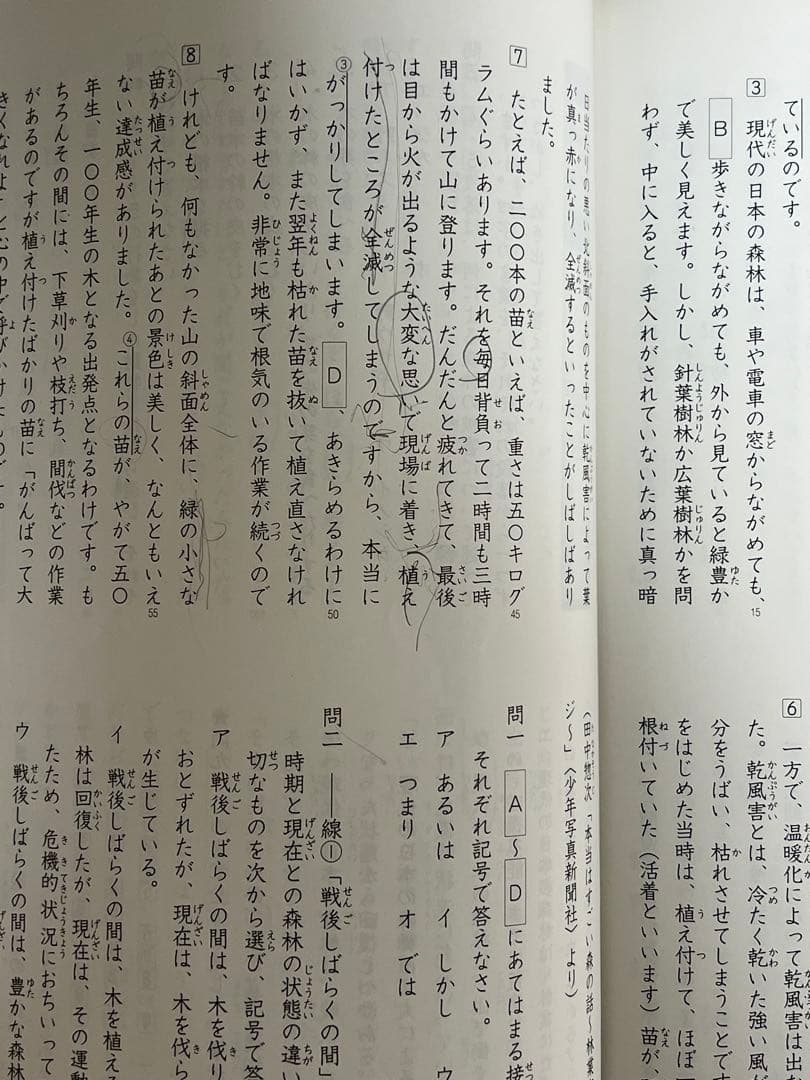 ているのです。
3 現代の日本の森林は、車や電車の窓からながめても、
B 歩きながらながめても、外から見ていると緑豊か
で美しく見えます。しかし、針葉樹林か広葉樹林かを問
わず、中に入ると、手入れがされていないために真っ暗
15
6 一方で、温暖化によって乾風害は出な
た。乾風害とは、冷たく乾いた強い風が
分をうばい、枯れさせてしまうことで
をはじめた当時は、植え付けて、ほぼ
根付いていた(活着といいます)苗が、
日当たりの悪い北斜面のものを中心に乾風害によって葉
が真っ赤になり、全滅するといったことがしばしばあり
ました。
7 たとえば、二〇〇本の苗といえば、重さは五〇キログ
ラムぐらいあります。それを毎日背負って二時間も三時
間もかけて山に登ります。だんだんと疲れてきて、最後
は目から火が出るような大変な思いで現場に着き、植え
付けたところが全滅してしまうのですから、本当に
③がっかりしてしまいます。D、あきらめるわけに
はいかず、また翌年も枯れた苗を抜いて植え直さなけれ
ばなりません。非常に地味で根気のいる作業が続くので
す。
8 けれども、何もなかった山の斜面全体に、緑の小さな
苗が植え付けられたあとの景色は美しく、なんともいえ
ない達成感がありました。④これらの苗が、やがて五〇
年生、一〇〇年生の木となる出発点となるわけです。も
ちろんその間には、下草刈りや枝打ち、間伐などの作業
があるのですが植え付けたばかりの苗に「がんばって大
45
50
55
(田中惣次「本当はすごい森の話〜林業
ジ〜」〈少年写真新聞社〉より)
問一 A〜Dにあてはまる接
それぞれ記号で答えなさい。
ア あるいは イ しかし ウ
エ つまり オ では
問二 ――線①「戦後しばらくの間」
時期と現在との森林の状態の違い
切なものを次から選び、記号で答
ア 戦後しばらくの間は、木を伐り
おとずれたが、現在は、木を伐ら
が生じている。
イ 戦後しばらくの間は、木を植える
林は回復したが、現在は、その運動
たため、危機的状況におちいって
ウ 戦後しばらくの間は、豊かな森林